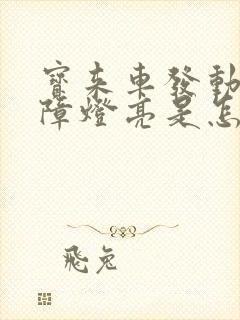 寶來車發動
障燈亮是怎
飛兔